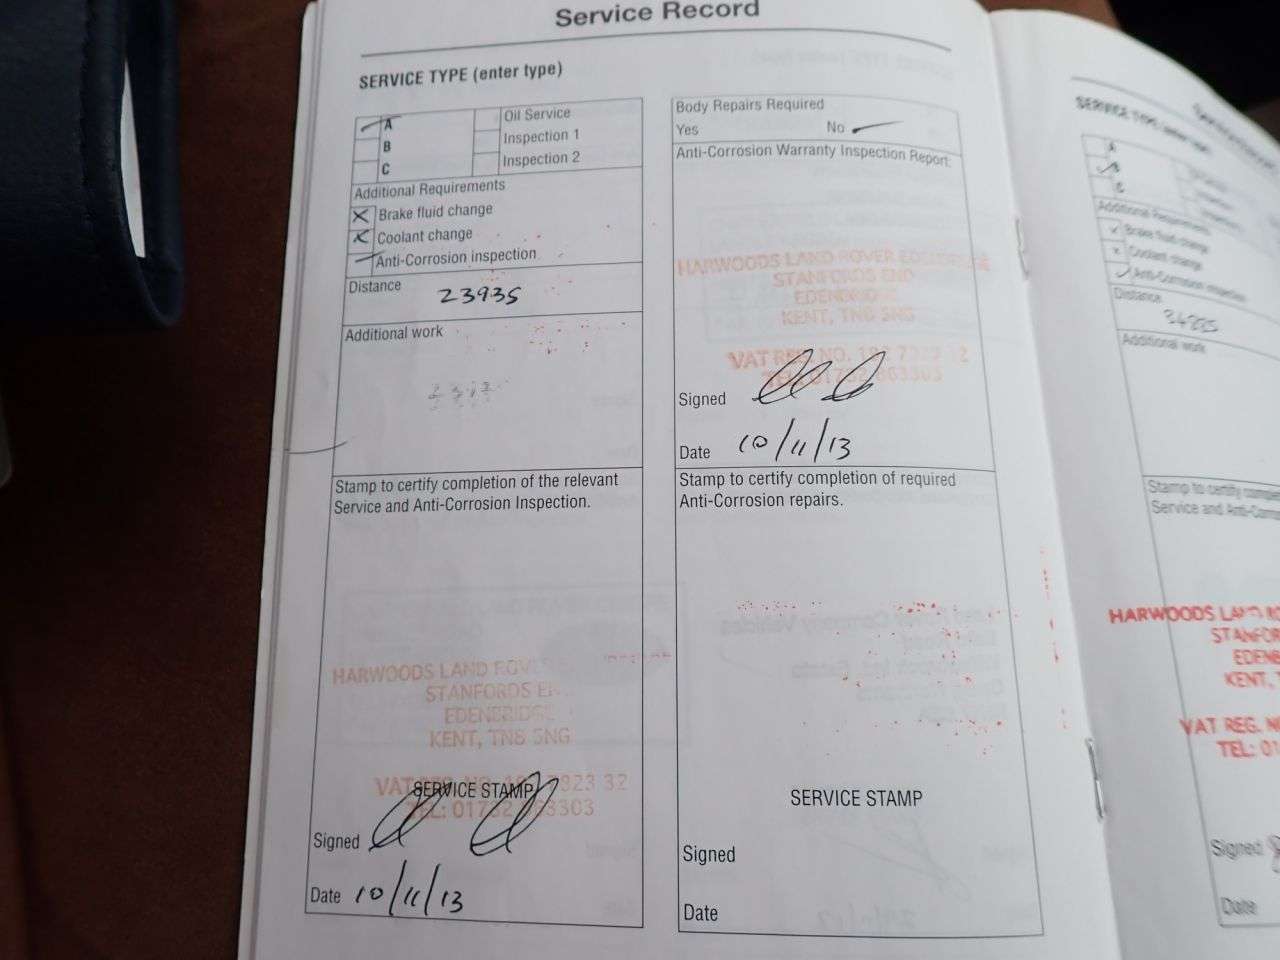 Service Record
SERVICE TYPE (enter type)
A
B
C
Oil Service
Inspection 1
Inspection 2
Additional Requirements
Brake fluid change
Coolant change
Anti-Corrosion inspection
Distance
23935
Additional work
Stamp to certify completion of the relevant
Service and Anti-Corrosion Inspection.
HARWOODS LAND ROVER
STANFORDS
EDENBRIDGE
KENT, TN8 5NG
VAT 823 32
SERVICE STAMP
TEL: 01732 863303
Signed
Date 10/11/13
Body Repairs Required
Yes No
Anti-Corrosion Warranty Inspection Report
HARWOODS LAND ROVER
STANFORDS END
KENT, TN8 5NG
VAT REG. NO.
TEL: 01732 863303
Signed
Date 10/11/13
Stamp to certify completion of required
Anti-Corrosion repairs.
SERVICE STAMP
Signed
Date
SERVICE TYPE
A
B
C
Additional Requirements
Brake fluid change
Coolant change
Anti-Corrosion inspection
Distance
Additional work
Stamp to certify
Service and
HARWOODS
KENT,
VAT REG.
TEL: 01
Signed
Date